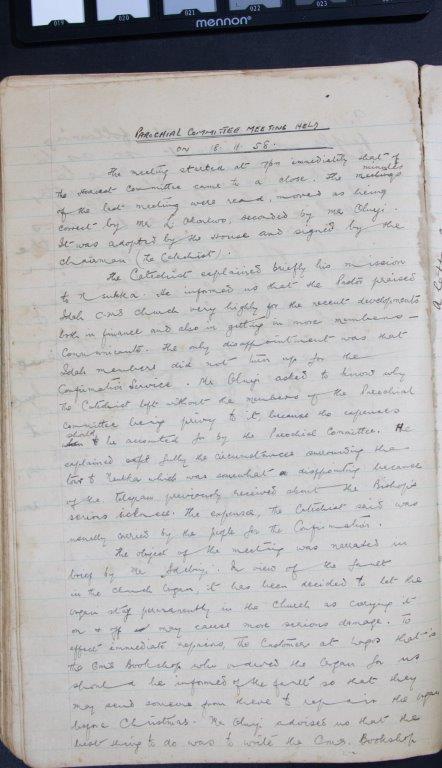 019 020 021 022 023
mennon
PAROCHIAL COMMITTEE MEETING HELD
ON 18. 11. 58.
The meeting started at 7pm immediately that of
the Harvest Committee came to a close. The minutes
of the last meeting were read, moved as being
correct by Mr L. Okorluo, seconded by Mr Oluyi.
It was adopted by the House and signed by the
Chairman (the Catechist).
The Catechist explained briefly his mission
to Nsukka. He informed us that the Pastor praised
Idah C.M.S Church very highly for the recent developments
both in finance and also in getting in more members —
Communicants. The only disappointment was that
Idah members did not turn up for the
Confirmation Service. Mr Oluyi asked to know why
the Catechist left without the members of the Parochial
Committee being privy to it, because the expenses
should be accounted for by the Parochial Committee. He
explained fully the circumstances surrounding the
tour to Nsukka which was somewhat disappointing because
of the Telegram previously received about the Bishop's
serious sickness. The expenses, the Catechist said was
usually carried by the people for the Confirmation.
The object of the meeting was narrated in
brief by Mr Adebuyi. In view of the fault
in the Church Organ, it has been decided to let the
organ stay permanently in the Church as carrying it
on & off may cause more serious damage. To
effect immediate repairs, the Customers at Lagos that is
the C.M.S Bookshop who ordered the Organ for us
should be informed of the fault so that they
may send someone from there to repair the organ
before Christmas. Mr Oluyi advised us that the
best thing to do was to write the C.M.S. Bookshop